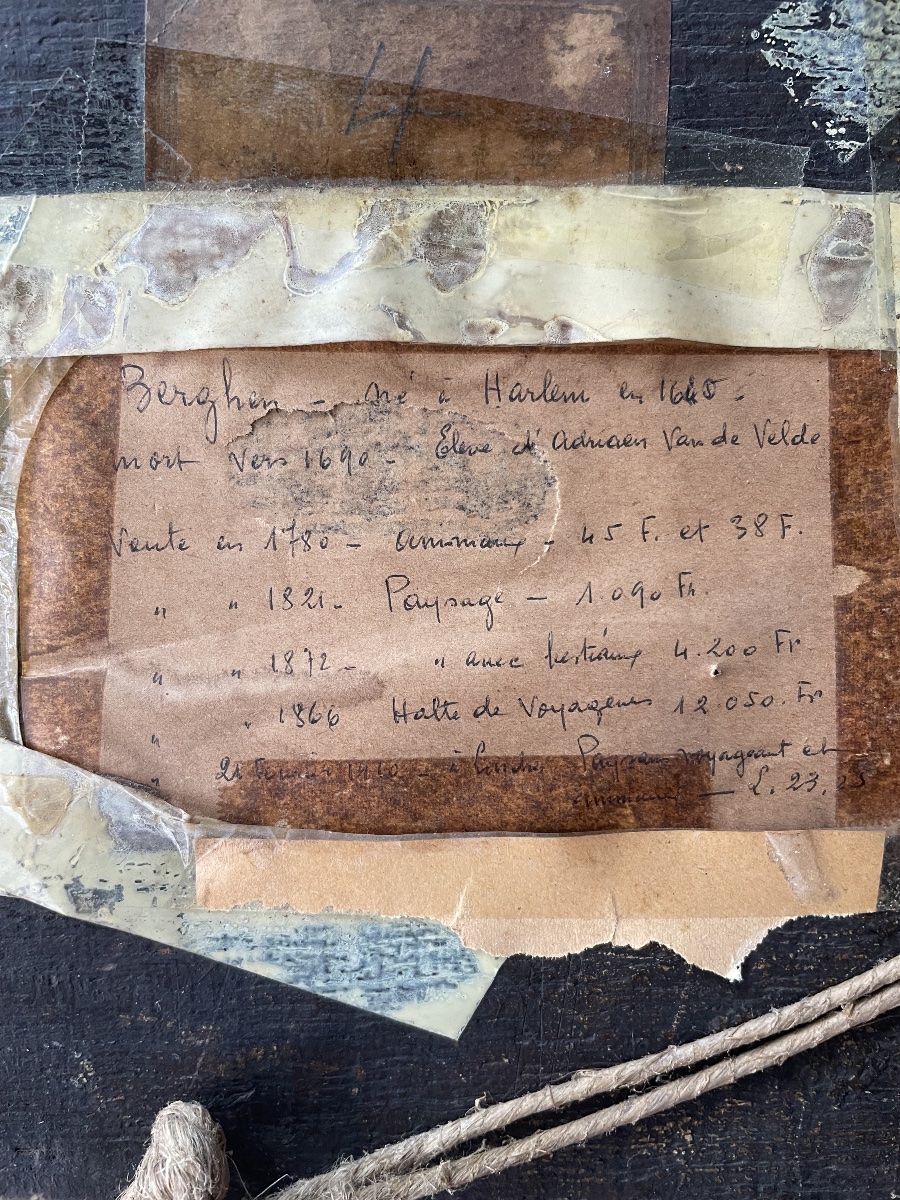 4
Berghen - né à Harlem en 1640 -
mort vers 1690 - Élève d'Adriaen Van de Velde
Vente en 1780 - animaux - 45 F. et 38 F.
" " 1821 - Paysage - 1.090 Fr.
" " 1872 - " avec bestiaux 4.200 Fr
" " 1866 Halte de Voyageurs 12 050. Fr
" 21 Février 1910 - à Londres Paysan voyageant et
animaux — £. 23,